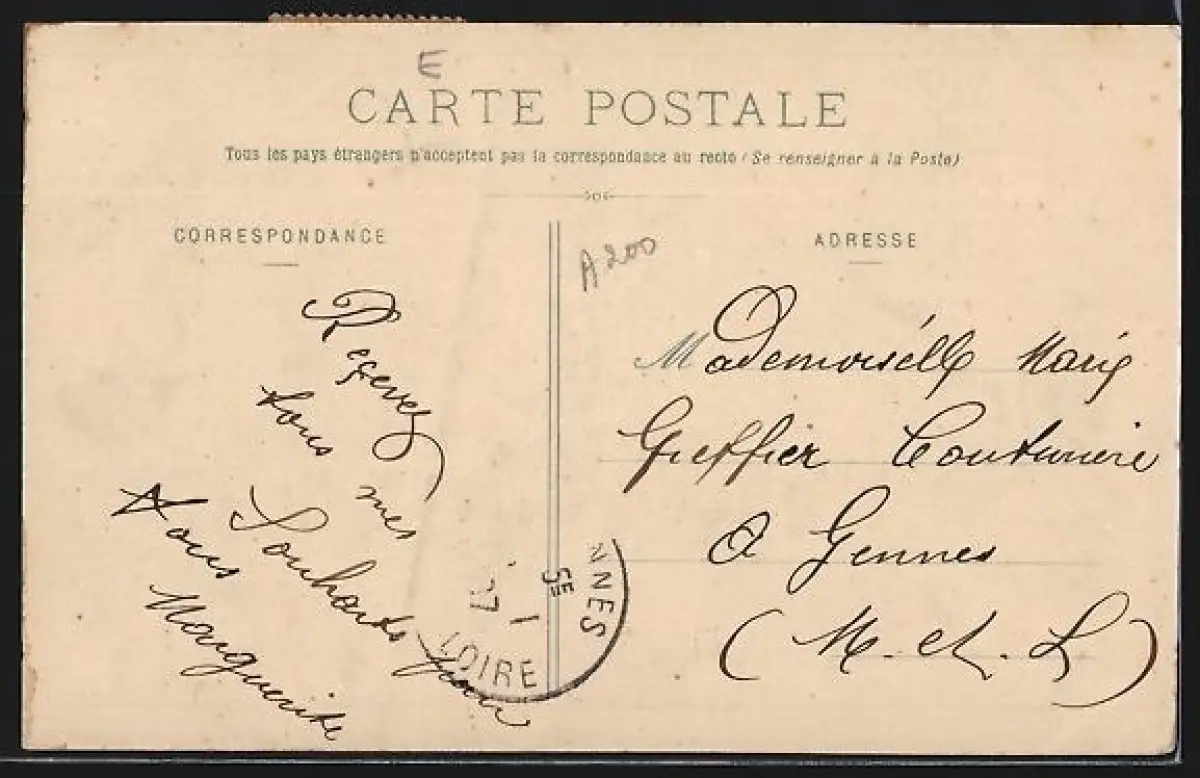 E
CARTE POSTALE
Tous les pays étrangers n'acceptent pas la correspondance au recto (Se renseigner à la Poste)
CORRESPONDANCE
Reçevez
tous mes
Souhaits pour
tous
Marguerite
ADRESSE
A200
Mademoiselle Marie
Greffier Couturière
A Gennes
(M. et. L)
NNES
5E
1
07
LOIRE